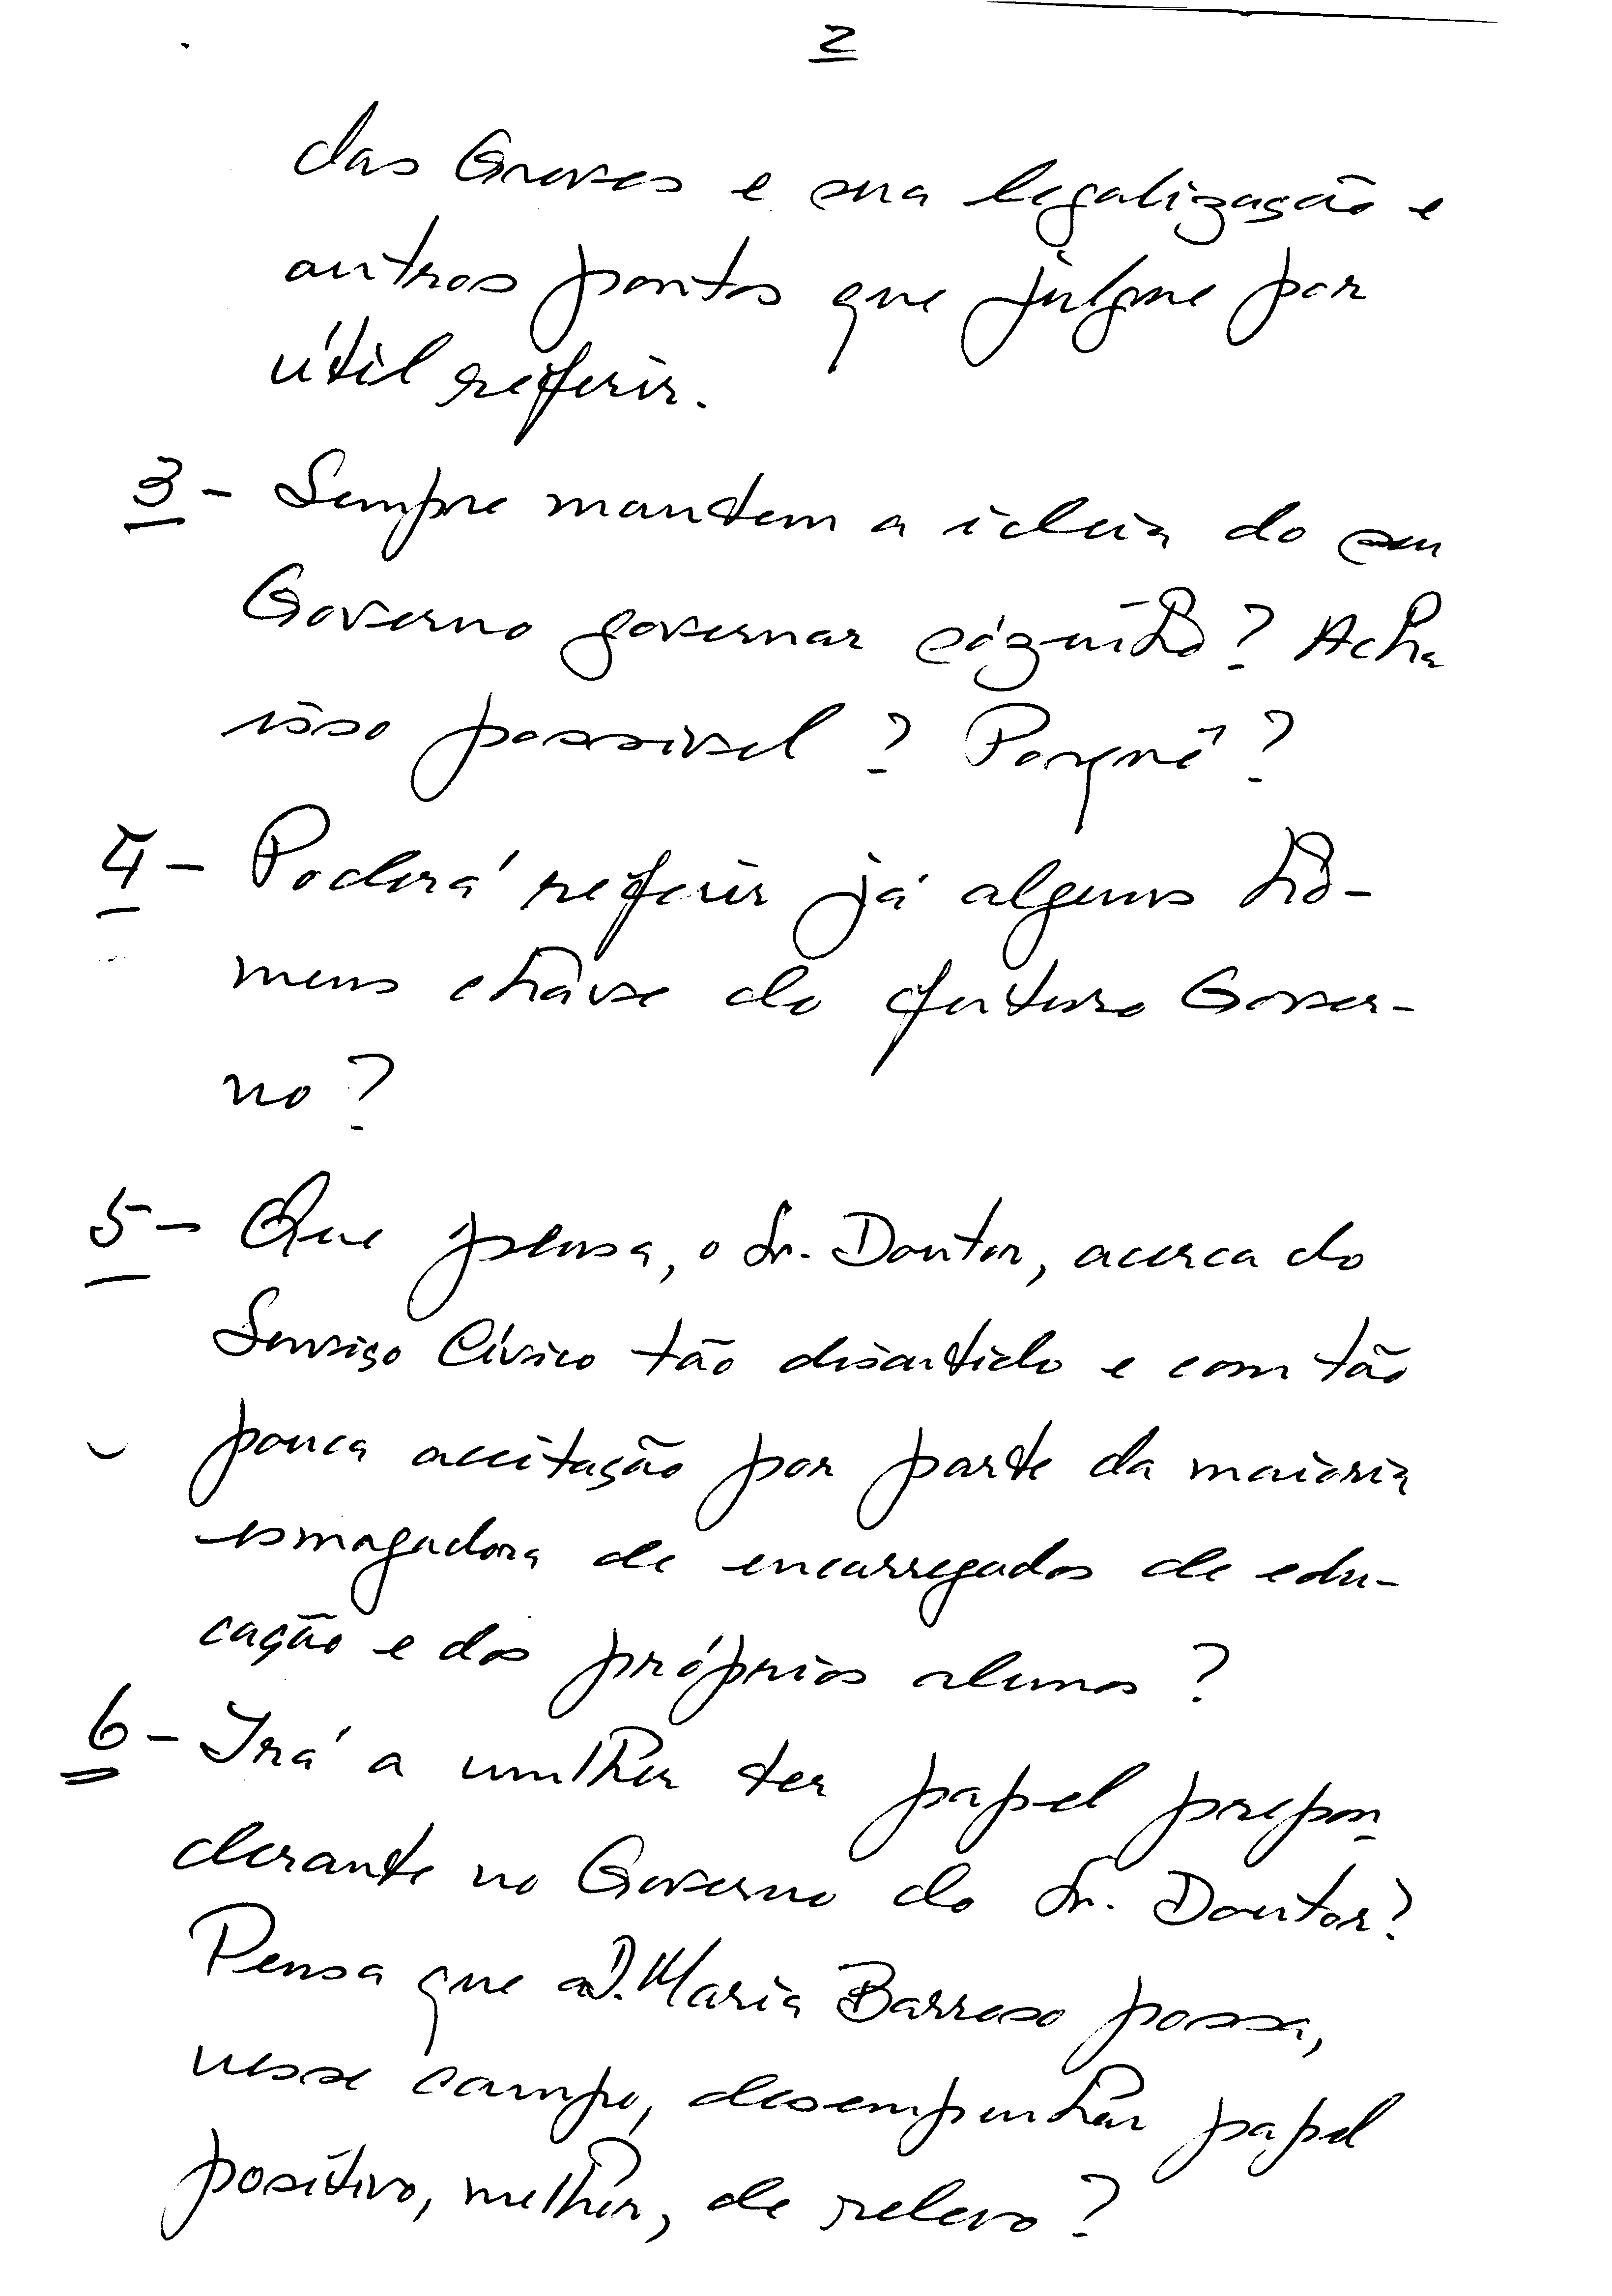 2
das Greves e sua legalização e
outros pontos que julgue por
útil referir.
3 - Sempre mantem a ideia do seu
Governo governar sòzinho? Acha
isso possivel? Porquê?
4 - Poderá referir já alguns ho-
mens chave do futuro Gover-
no?
5 - Que pensa, o Sr. Doutor, acerca do
Serviço Cívico tão discutido e com tão
pouca aceitação por parte da maioria
esmagadora de encarregados de edu-
cação e dos próprios alunos?
6 - Irá a mulher ter papel prepon
derante no Governo do Sr. Doutor?
Pensa que a D. Maria Barroso possa,
nesse campo, desempenhar papel
positivo, melhor, de relevo?